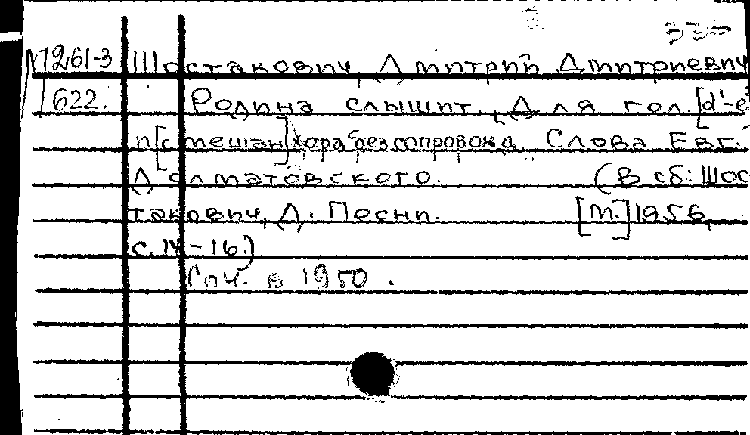 М261-3 Шостакович, Дмитрий Дмитриевич
622. Родина слышит. Для гол. [d'-e
и [смешан] хора без сопровожд. Слова Евг.
Долматовского. (В сб: Шос
такович, Д. Песни. [М.] 1956,
с. 14-16.)
Соч. в 1950.